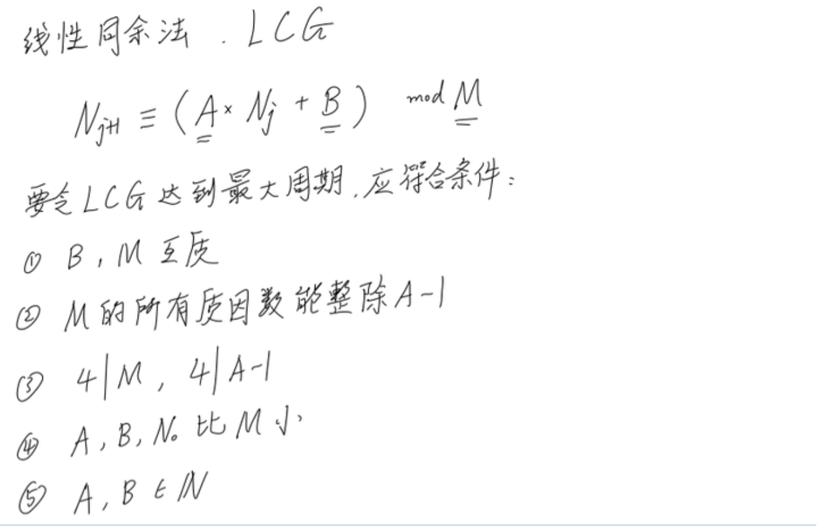 线性同余法 . LCG
N_{j+1} ≡ (A × N_j + B) mod M
要令LCG达到最大周期,应符合条件:
① B, M 互质
② M的所有质因数能整除A-1
③ 4|M, 4|A-1
④ A, B, N₀ 比 M 小
⑤ A, B ∈ ℕ